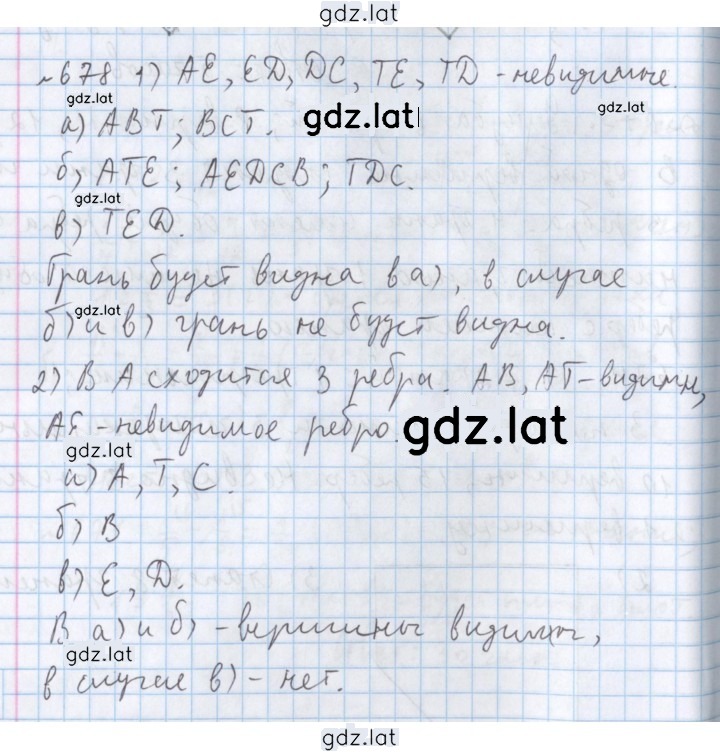 gdz.lat
№678 1) AE, ED, DC, TE, TD - невидимые.
gdz.lat
gdz.lat
а) ABT; BCT.
gdz.lat
б) ATE; AEDCB; TDC.
gdz.lat
в) TED.
Грань будет видна в а), в случае
gdz.lat
б) и в) грань не будет видна.
2) В A сходится 3 ребра. AB, AT - видимы,
AE - невидимое ребро.
gdz.lat
gdz.lat
а) A, T, C.
б) B
в) E, D.
В а) и б) - вершины видимы,
gdz.lat
в случае в) - нет.
gdz.lat